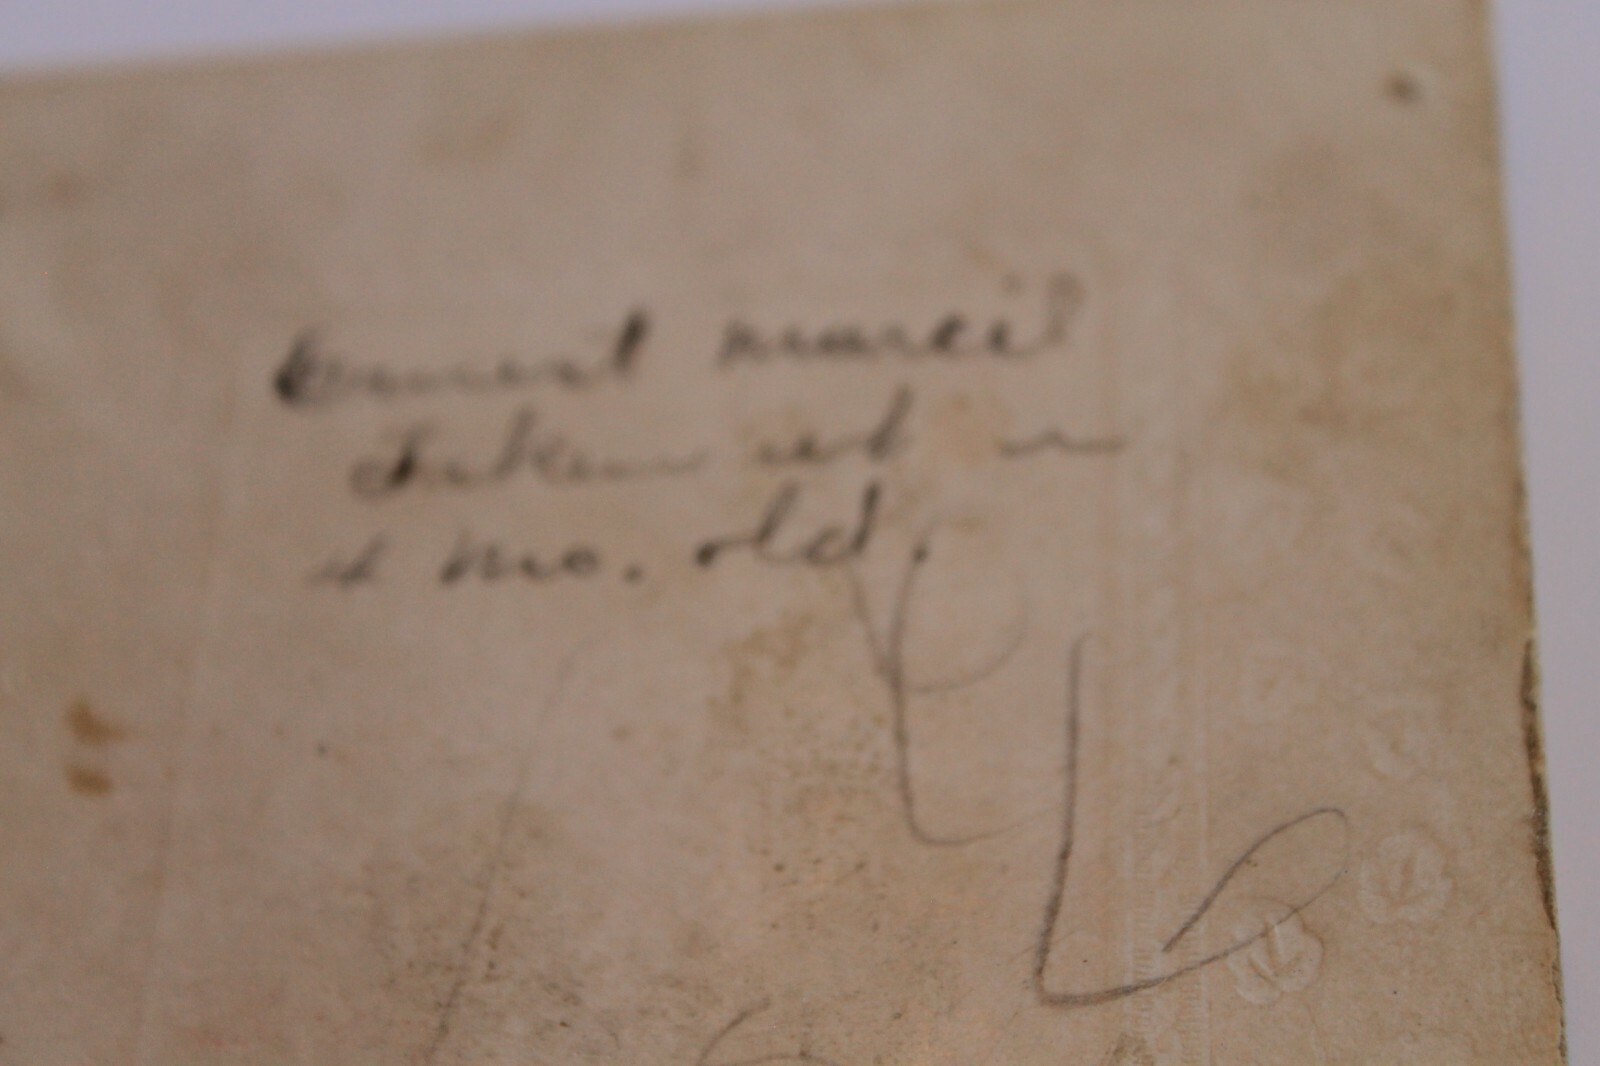 Ernest Marcil
Taken at
mo. old.